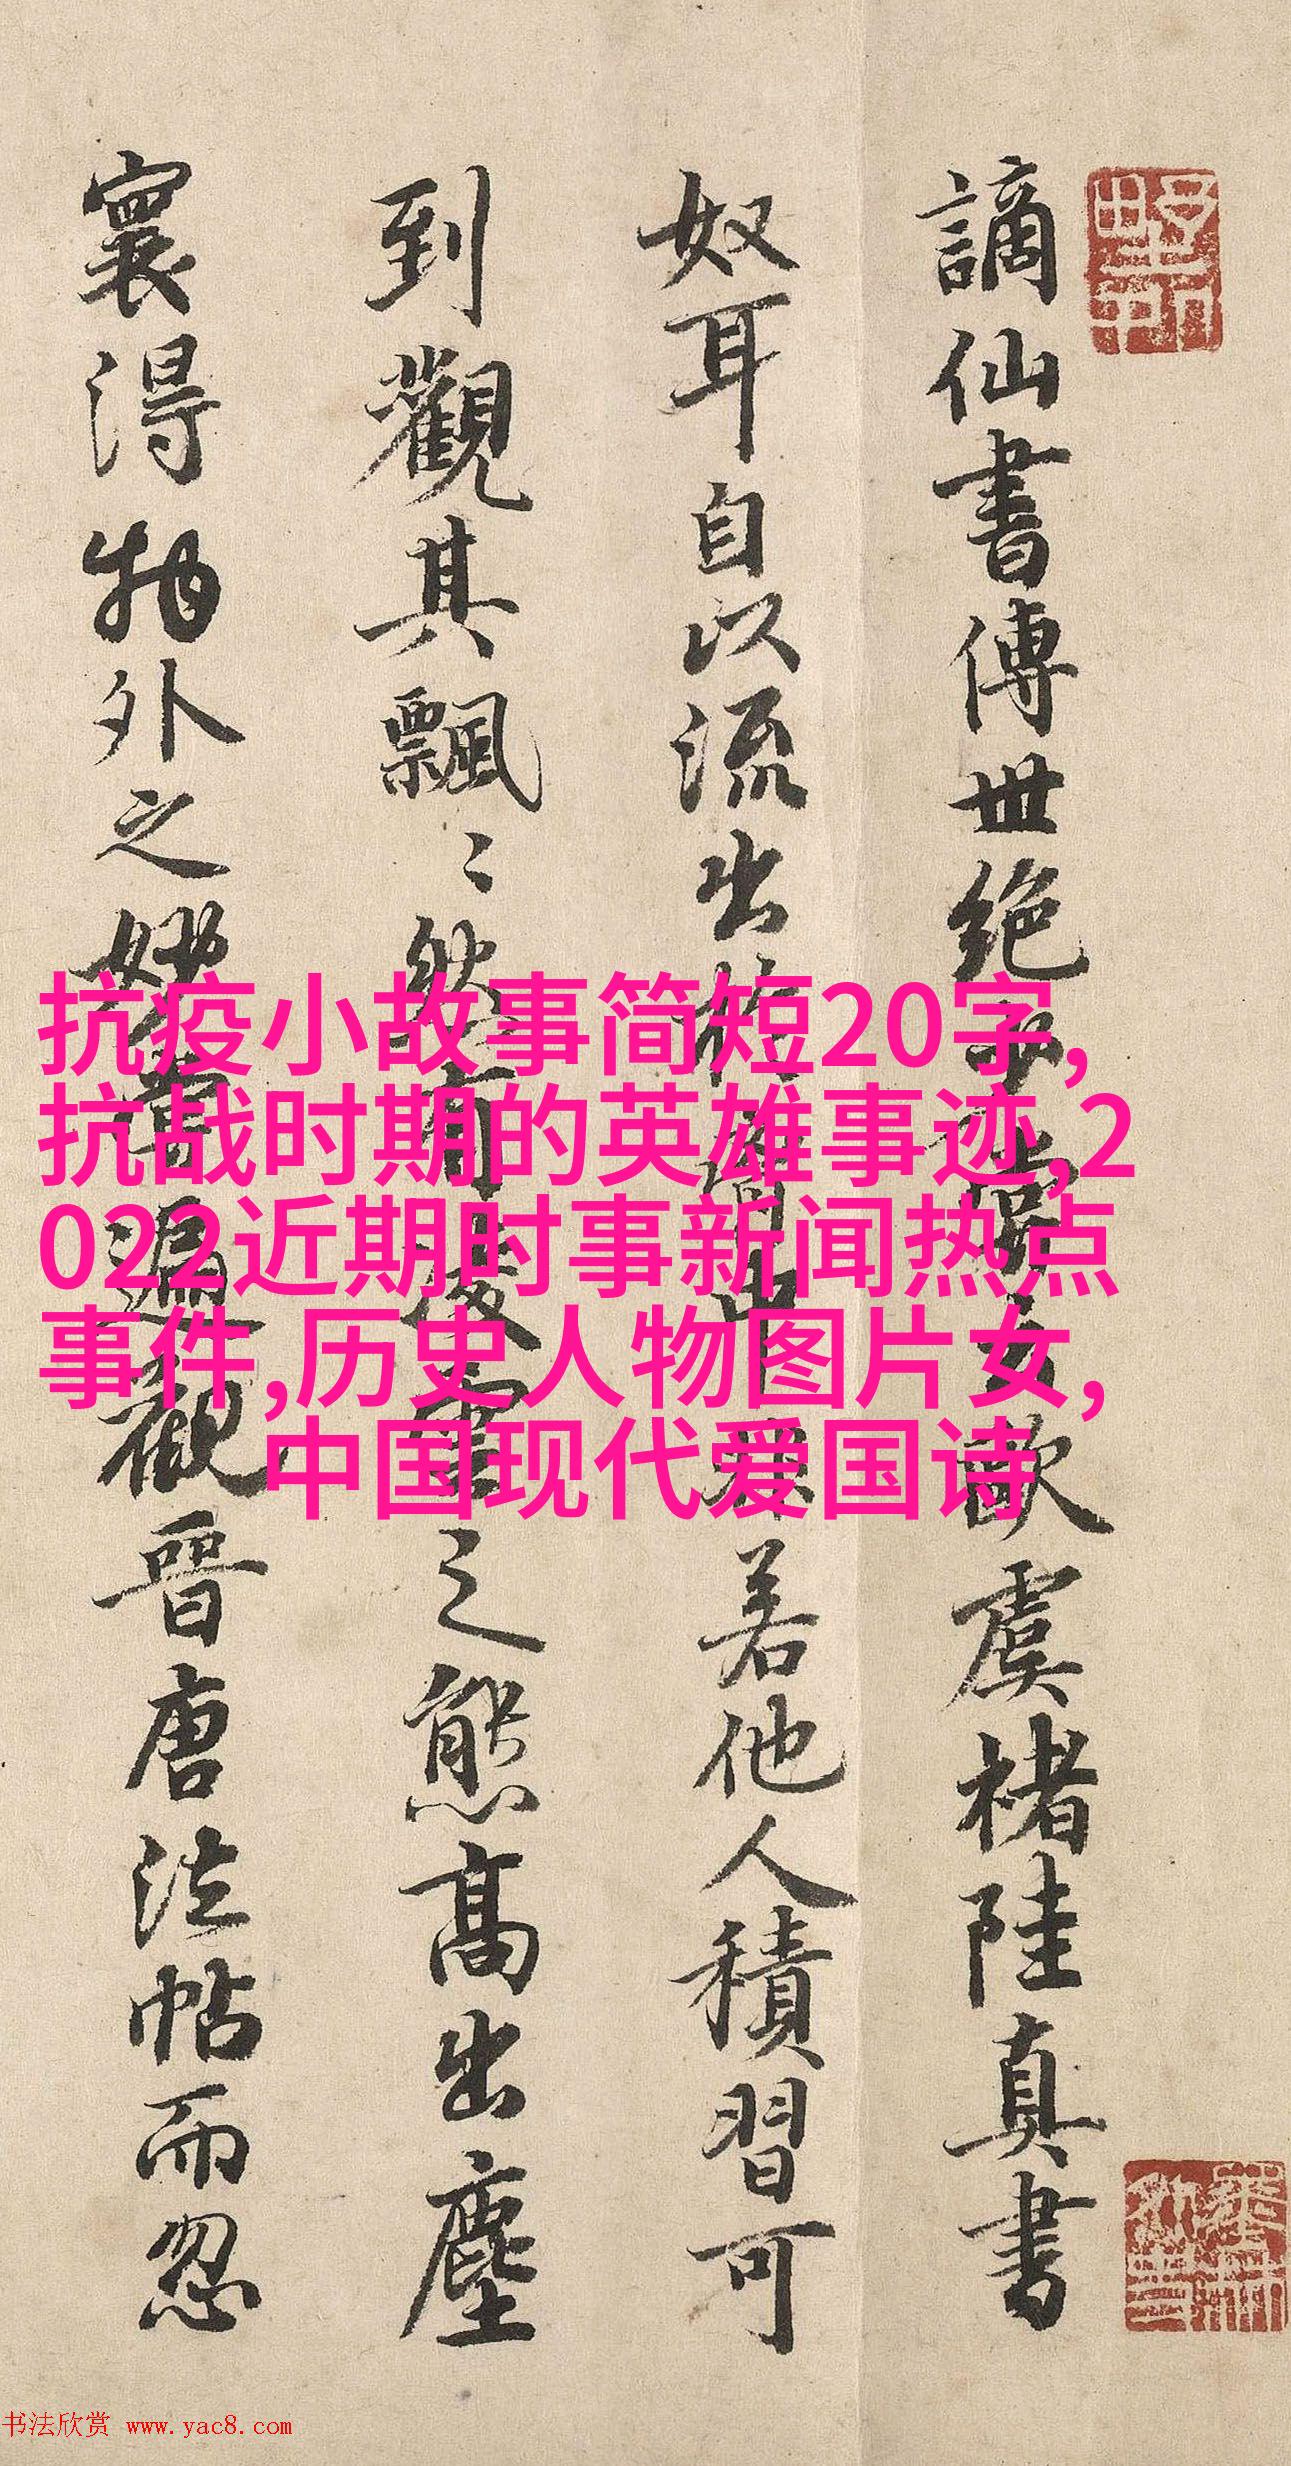 謫仙書傳世絕
歐虞褚陸真書
奴耳自以流出
若他人積習可
到觀其飄〻然有
之態高出塵
寰得物外之妙
遍觀晉唐法帖而忽
抗疫小故事简短20字,
抗战时期的英雄事迹,2
022近期时事新闻热点
事件,历史人物图片女,
中国现代爱国诗
书法欣赏 www.yac8.com